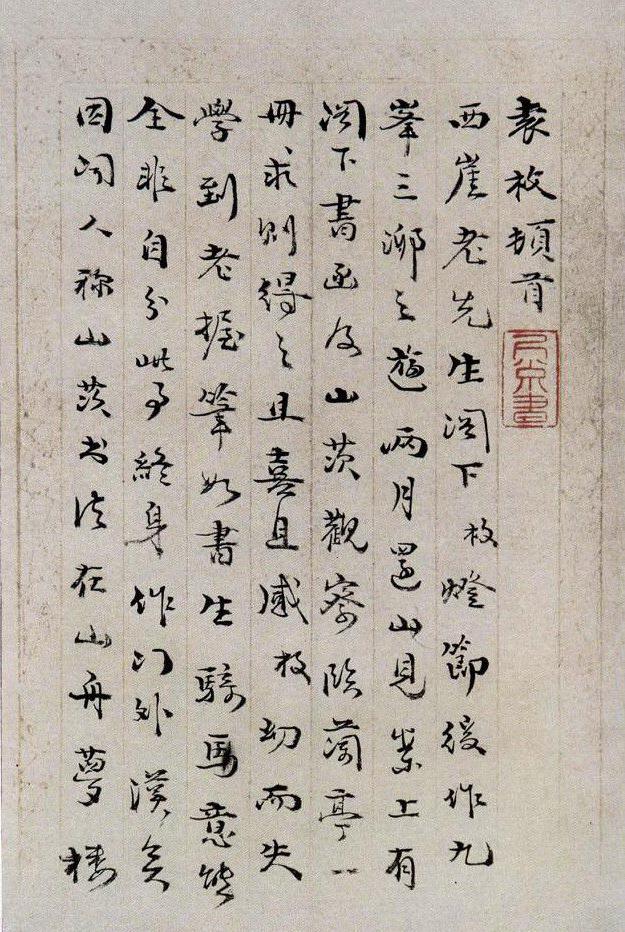 袁枚頓首
西崖老先生閣下枚燈節後作九
峯三泖之遊兩月還山見案上有
閣下書函及山茨觀察臨蘭亭一
冊求則得之且喜且感枚幼而失
學到老握筆如書生騎馬意態
全非自分此事終身作门外漢矣
因聞人称山茨书法在山舟夢樓